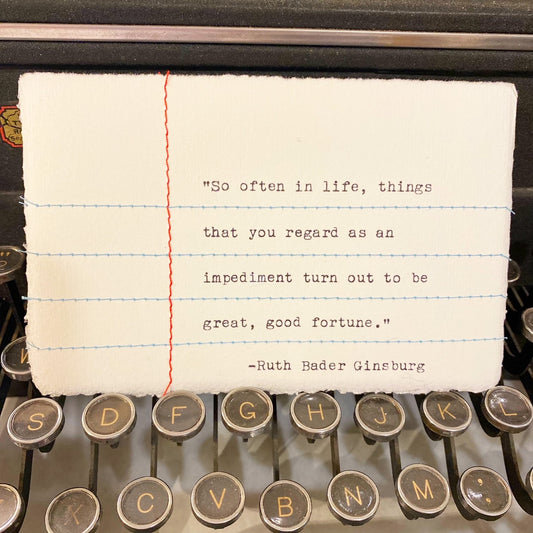 "So often in life, things
that you regard as an
impediment turn out to be
great, good fortune."
-Ruth Bader Ginsburg
S D F G H J K L
X C V B N M